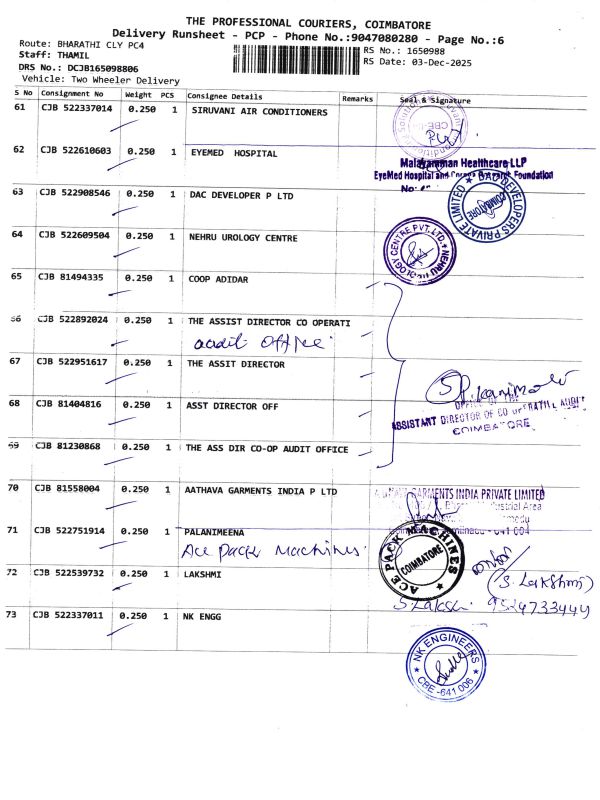 THE PROFESSIONAL COURIERS, COIMBATORE
Delivery Runsheet - PCP - Phone No.:9047080280 - Page No.:6
Route: BHARATHI CLY PC4
RS No.: 1650988
Staff: THAMIL
RS Date: 03-Dec-2025
DRS No.: DCJB165098806
Vehicle: Two Wheeler Delivery
S No Consignment No Weight PCS Consignee Details Remarks Seal & Signature
61 CJB 522337014 0.250 1 SIRUVANI AIR CONDITIONERS
62 CJB 522610603 0.250 1 EYEMED HOSPITAL
Healthcare LLP
EyeMed Hospital and Foundation
63 CJB 522908546 0.250 1 DAC DEVELOPER P LTD
DEVELOPERS PRIVATE LIMITED
COIMBATORE
64 CJB 522609504 0.250 1 NEHRU UROLOGY CENTRE
NEHRU UROLOGY CENTRE PVT. LTD.
65 CJB 81494335 0.250 1 COOP ADIDAR
66 CJB 522892024 0.250 1 THE ASSIST DIRECTOR CO OPERATI
audit office
67 CJB 522951617 0.250 1 THE ASSIT DIRECTOR
68 CJB 81404816 0.250 1 ASST DIRECTOR OFF
OFFICE OF THE
ASSISTANT DIRECTOR OF CO OPERATIVE AUDIT
COIMBATORE
69 CJB 81230868 0.250 1 THE ASS DIR CO-OP AUDIT OFFICE
70 CJB 81558004 0.250 1 AATHAVA GARMENTS INDIA P LTD
GARMENTS INDIA PRIVATE LIMITED
Industrial Area
71 CJB 522751914 0.250 1 PALANIMEENA
Ace Pack Machines
ACE PACK MACHINES
COIMBATORE
72 CJB 522539732 0.250 1 LAKSHMI
(S. Lakshmi)
9524733449
73 CJB 522337011 0.250 1 NK ENGG
NK ENGINEERS
CBE-641 006